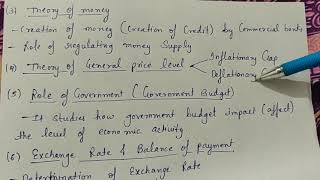 (3) Theory of money
- Creation of money (Creation of Credit) by Commercial banks
- Role of Regulating money Supply
(4) Theory of General price level
Inflationary Gap
Deflationary
(5) Role of Government (Government Budget)
- It studies how government budget impact (affect)
the level of economic activity
(6) Exchange Rate & Balance of payment
- Determination of Exchange Rate